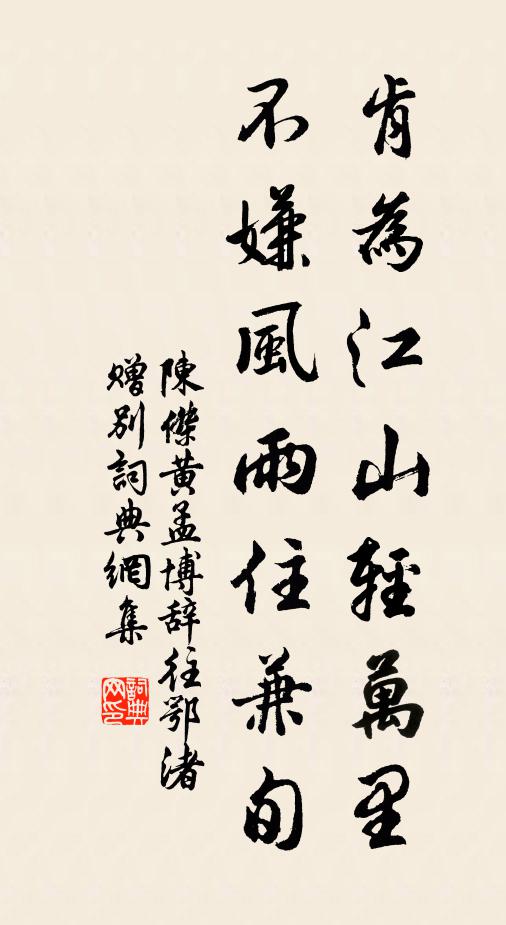 肯為江山輕萬里
不嫌風雨住兼旬
陳傑黃孟博辞往鄂渚
贈別詞典網集
詞典
网印